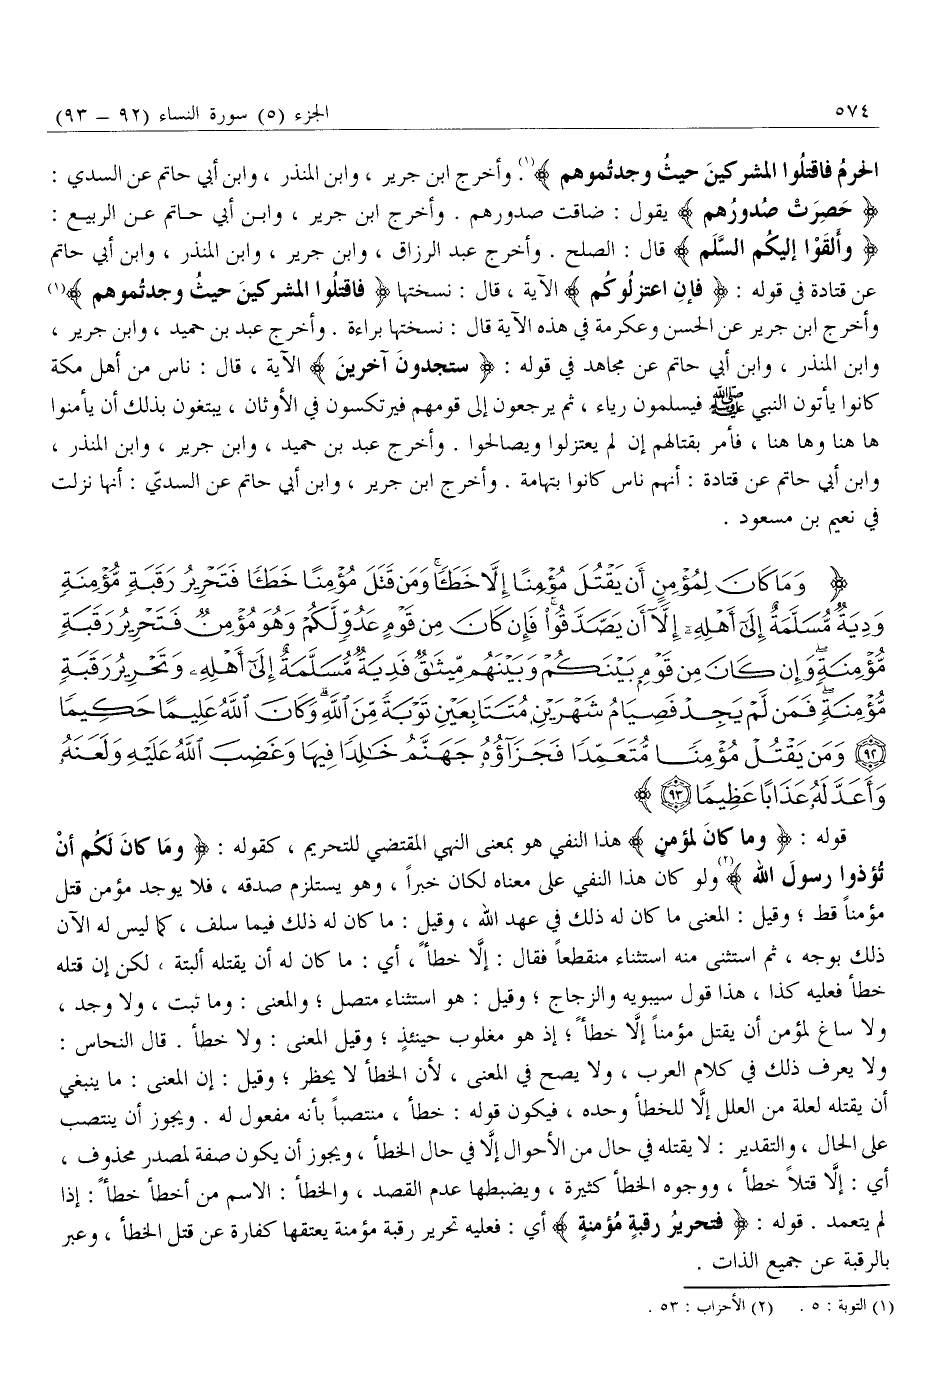 ٥٧٤ الجزء (٥) سورة النساء (٩٢ – ٩٣)
الحرمُ فاقتلُوا المشركينَ حيثُ وجدتُموهم ﴾(١). وأخرج ابن جرير ، وابن المنذر ، وابن أبي حاتم عن السدي :
﴿ حَصِرَتْ صُدورُهم ﴾ يقول : ضاقت صدورهم . وأخرج ابن جرير ، وابن أبي حاتم عن الربيع :
﴿ وأَلقَوْا إليكُم السَّلَم ﴾ قال : الصلح . وأخرج عبد الرزاق ، وابن جرير ، وابن المنذر ، وابن أبي حاتم
عن قتادة في قوله : ﴿ فإنِ اعتزلُوكُم ﴾ الآية ، قال : نسختها ﴿ فاقتلُوا المشركينَ حيثُ وجدتُموهم ﴾(١)
وأخرج ابن جرير عن الحسن وعكرمة في هذه الآية قال : نسختها براءة . وأخرج عبد بن حميد ، وابن جرير ،
وابن المنذر ، وابن أبي حاتم عن مجاهد في قوله : ﴿ ستجدونَ آخرينَ ﴾ الآية ، قال : ناس من أهل مكة
كانوا يأتون النبي ﷺ فيسلمون رياء ، ثم يرجعون إلى قومهم فيرتكسون في الأوثان ، يبتغون بذلك أن يأمنوا
ها هنا وها هنا ، فأمر بقتالهم إن لم يعتزلوا ويصالحوا . وأخرج عبد بن حميد ، وابن جرير ، وابن المنذر ،
وابن أبي حاتم عن قتادة : أنهم ناس كانوا بتهامة . وأخرج ابن جرير ، وابن أبي حاتم عن السديّ : أنها نزلت
في نعيم بن مسعود .
﴿ وَمَا كَانَ لِمُؤْمِنٍ أَن يَقْتُلَ مُؤْمِنًا إِلَّا خَطَـًٔا ۚ وَمَن قَتَلَ مُؤْمِنًا خَطَـًٔا فَتَحْرِيرُ رَقَبَةٍ مُّؤْمِنَةٍ
وَدِيَةٌ مُّسَلَّمَةٌ إِلَىٰٓ أَهْلِهِۦٓ إِلَّآ أَن يَصَّدَّقُوا۟ ۚ فَإِن كَانَ مِن قَوْمٍ عَدُوٍّ لَّكُمْ وَهُوَ مُؤْمِنٌ فَتَحْرِيرُ رَقَبَةٍ
مُّؤْمِنَةٍ ۖ وَإِن كَانَ مِن قَوْمٍۭ بَيْنَكُمْ وَبَيْنَهُم مِّيثَٰقٌ فَدِيَةٌ مُّسَلَّمَةٌ إِلَىٰٓ أَهْلِهِۦ وَتَحْرِيرُ رَقَبَةٍ
مُّؤْمِنَةٍ ۖ فَمَن لَّمْ يَجِدْ فَصِيَامُ شَهْرَيْنِ مُتَتَابِعَيْنِ تَوْبَةً مِّنَ ٱللَّهِ ۗ وَكَانَ ٱللَّهُ عَلِيمًا حَكِيمًا
﴿٩٢﴾ وَمَن يَقْتُلْ مُؤْمِنًا مُّتَعَمِّدًا فَجَزَآؤُهُۥ جَهَنَّمُ خَٰلِدًا فِيهَا وَغَضِبَ ٱللَّهُ عَلَيْهِ وَلَعَنَهُۥ
وَأَعَدَّ لَهُۥ عَذَابًا عَظِيمًا ﴿٩٣﴾ ﴾
قوله : ﴿ وما كانَ لمؤمنٍ ﴾ هذا النفي هو بمعنى النهي المقتضي للتحريم ، كقوله : ﴿ ومَا كانَ لَكُم أنْ
تُؤذوا رسولَ الله ﴾(٢) ولو كان هذا النفي على معناه لكان خبراً ، وهو يستلزم صدقه ، فلا يوجد مؤمن قتل
مؤمناً قط ؛ وقيل : المعنى ما كان له ذلك في عهد الله ، وقيل : ما كان له ذلك فيما سلف ، كما ليس له الآن
ذلك بوجه ، ثم استثنى منه استثناء منقطعاً فقال : إلَّا خطأً ، أي : ما كان له أن يقتله ألبتة ، لكن إن قتله
خطأ فعليه كذا ، هذا قول سيبويه والزجاج ؛ وقيل : هو استثناء متصل ؛ والمعنى : وما ثبت ، ولا وجد ،
ولا ساغ لمؤمن أن يقتل مؤمناً إلَّا خطأً ؛ إذ هو مغلوب حينئذٍ ؛ وقيل المعنى : ولا خطأ . قال النحاس :
ولا يعرف ذلك في كلام العرب ، ولا يصح في المعنى ، لأن الخطأ لا يحظر ؛ وقيل : إن المعنى : ما ينبغي
أن يقتله لعلة من العلل إلَّا للخطأ وحده ، فيكون قوله : خطأ ، منتصباً بأنه مفعول له . ويجوز أن ينتصب
على الحال ، والتقدير : لا يقتله في حال من الأحوال إلَّا في حال الخطأ ، ويجوز أن يكون صفة لمصدر محذوف ،
أي : إلَّا قتلاً خطأ ، ووجوه الخطأ كثيرة ، ويضبطها عدم القصد ، والخطأ : الاسم من أخطأ خطأً : إذا
لم يتعمد . قوله : ﴿ فتحريرُ رقبةٍ مُؤمنةٍ ﴾ أي : فعليه تحرير رقبة مؤمنة يعتقها كفارة عن قتل الخطأ ، وعبر
بالرقبة عن جميع الذات .
(١) التوبة : ٥ . (٢) الأحزاب : ٥٣ .